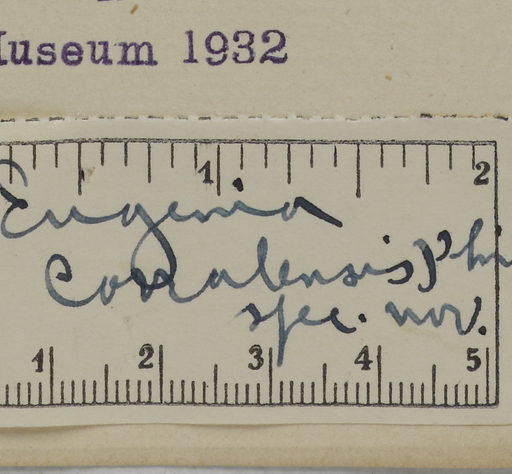 Museum 1932
1 2
Eugenia
Corralensis Phi
spec. nov.
1 2 3 4 5